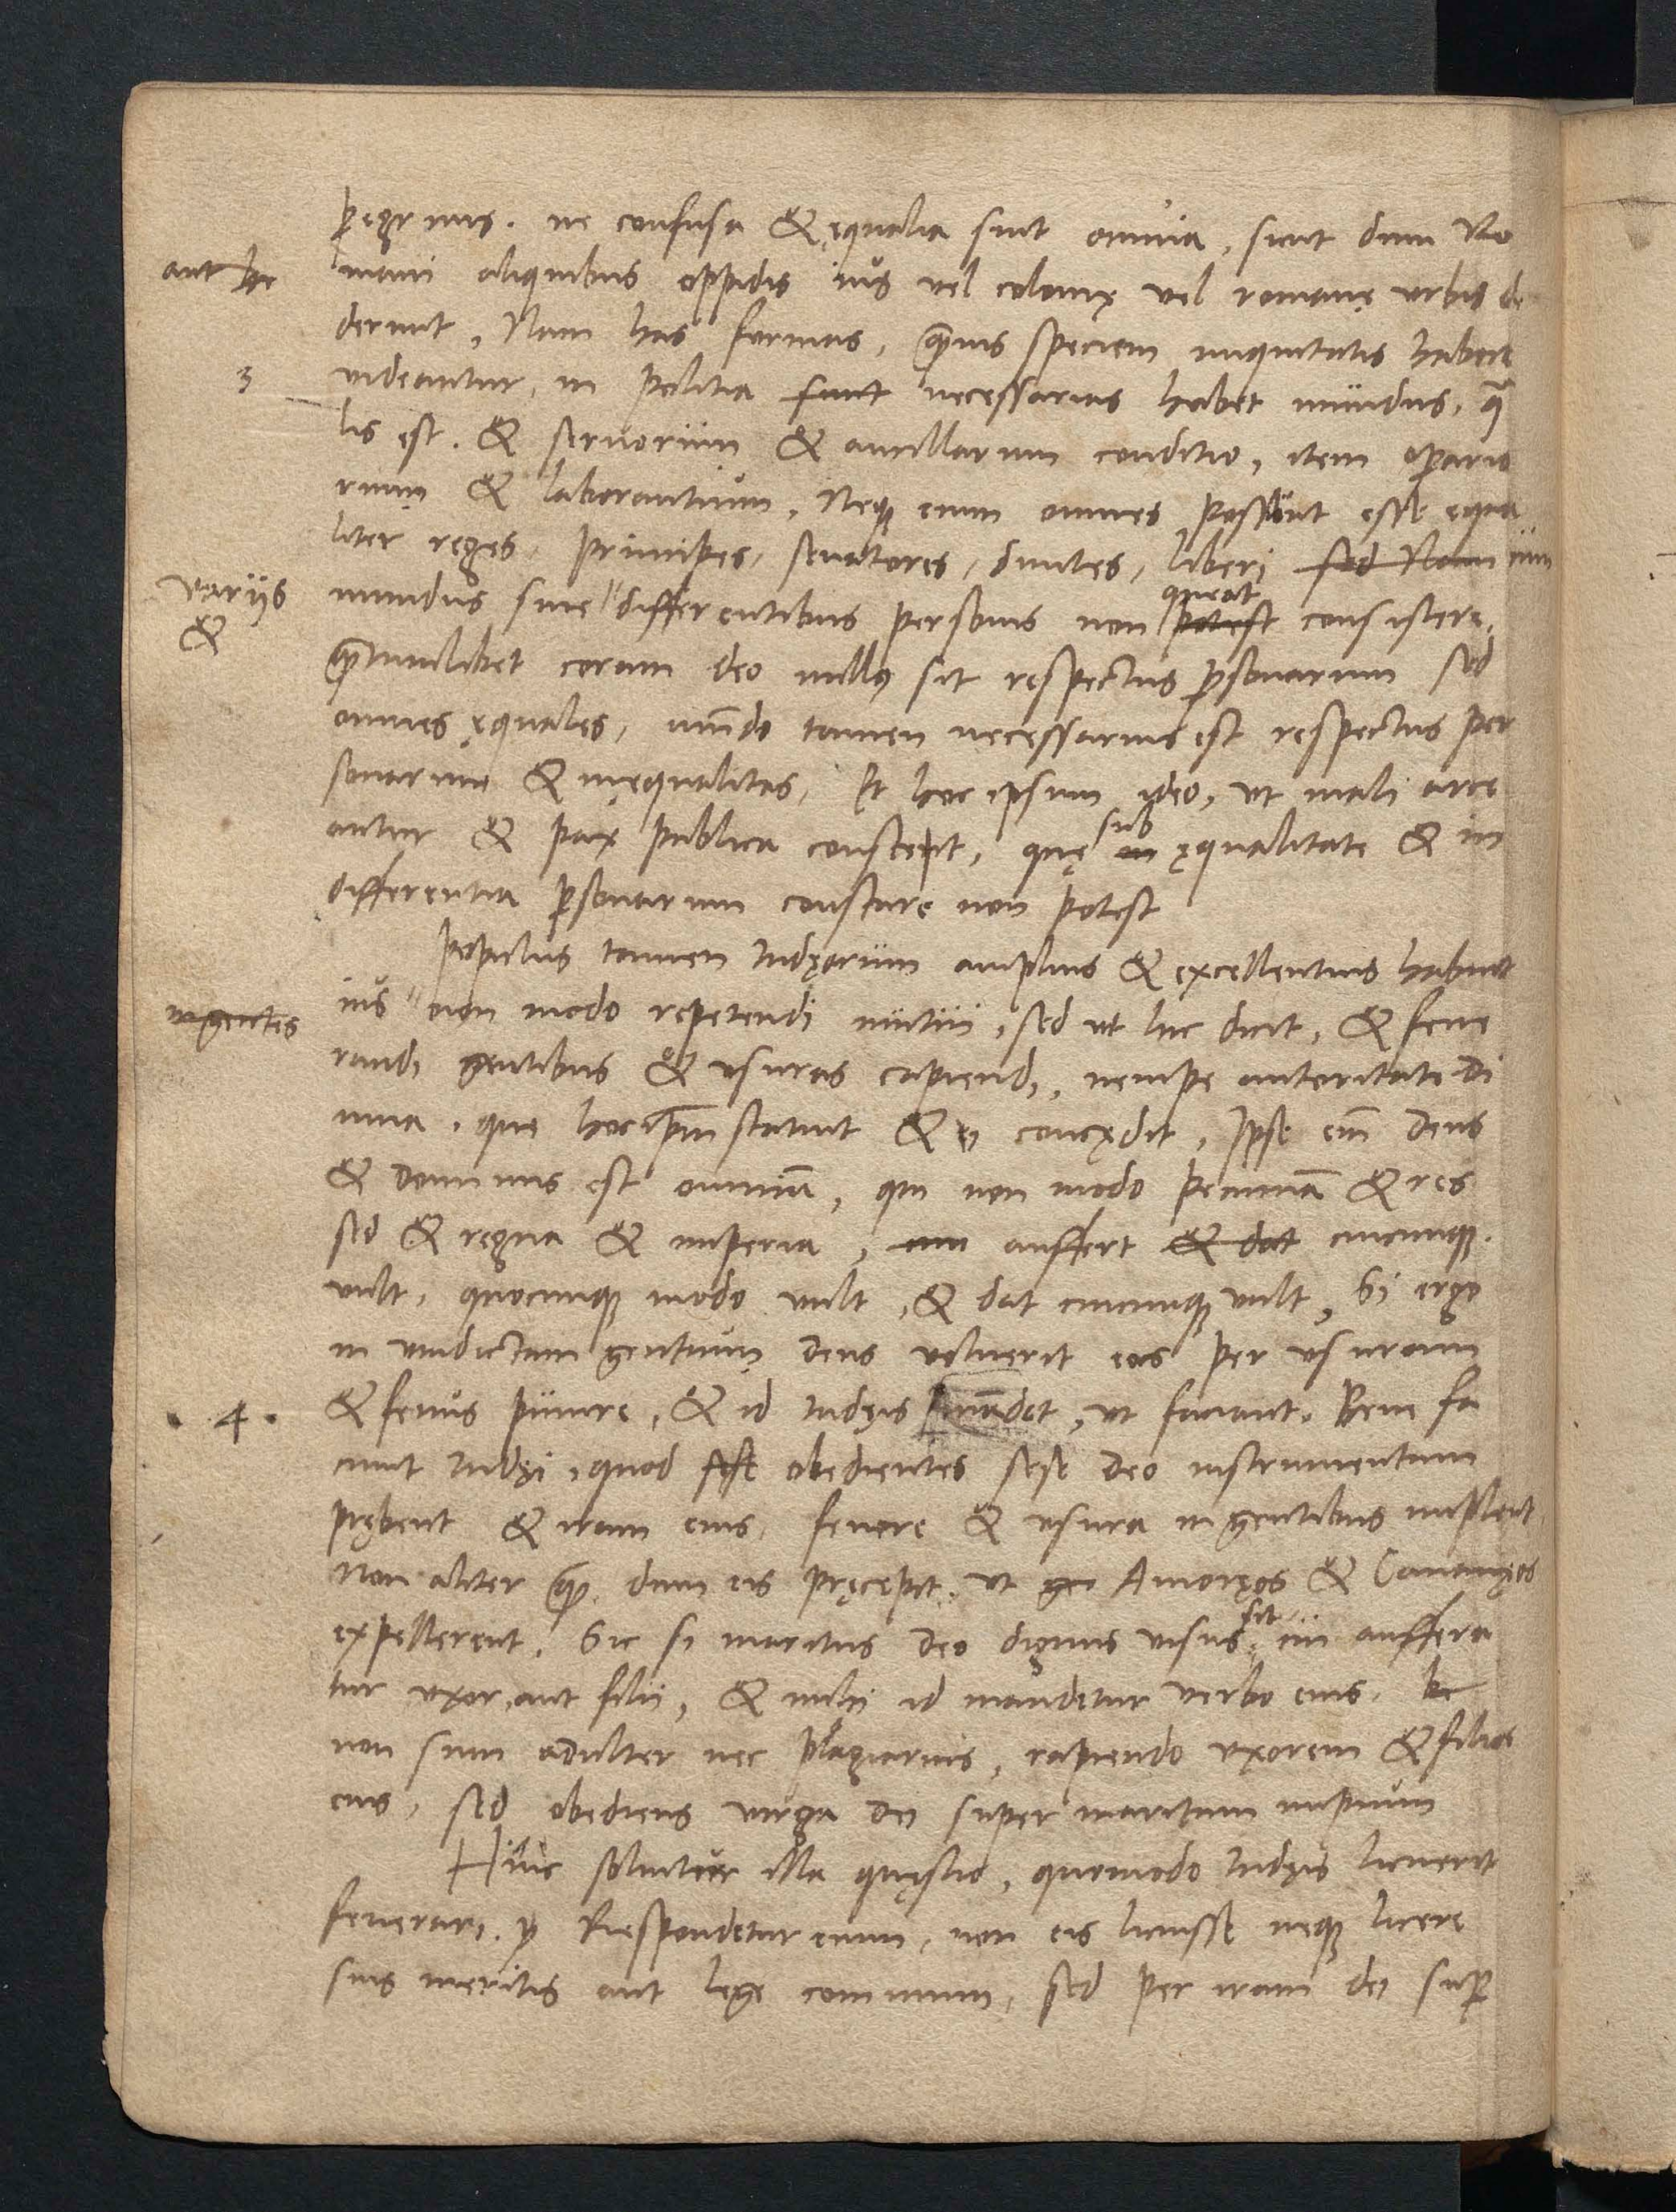 p̲egrinis. ne confusa & ęqualia sint omnia, sicut dum Ro
aut hc
mani aliquibus oppidis ius vel colonię vel romanę vrbis de
derunt, Nam has formas, q̃uis speciem iniquitatis habere
3
videantur, in politia sunt necessarias habet mundus, q̃
lis est. & seruorum & ancillarum conditio, item op̲ario
rum & laborantium. Neq3 enim omnes possunt esse equa
liter reges, principes, senatores, diuites, liberi sed Nam cum
varijs
&
queat
mundus sine " differentibus personis non potest consistere,
q̃tumlibet coram deo nullus sit respectus p̲sonarum sed
omnes ęquales, mũdo tamen necessarius est respectus per
sonarum & inęqualitas, Et hoc ipsum ideo, vt mali arce
sub
antur & pax publica constet, quę in ęqualitate & in
differentia p̲sonarum constare non potest
Populus tamen Iudęorum amplius & excellentius habuit
in gentes
ius " non modo repetendi mutui, sed vt hic dicit, & fene
randi gentibus & vsuras capiendi, nempe autoritate Di
uina, que hoc ip̃m statuit & ei concedit, Ipse em̃ Deus
& dominus est omniũ, qui non modo pecuniã & res
sed & regna & imperia, cui auffert & dat cuicunq3
vult, quocunq3 modo vult, & dat cuicunq3 vult, Si ergo
in vindictam gentium Deus voluerit eas per vsuram
. 4 .
& fenus punire, & id Iudęis mãdet, vt faciant. Bene fa
ciunt Iudęi, quod sese obedientes sese Deo instrumentum
prębent & iram eius, fenore & vsura in gentibus implent
Non aliter q̃, dum eis pręcepit, vt ge Amoręos & Cananęos
sit
expellerent, Sic si maritus Deo dignus visus, cui auffera
tur vxor, aut filii, & mihi id mandetur verbo eius, hc
non sum adulter nec plagiarius, rapiendo vxorem & filios
eius, sed obediens virga Dei super maritum impium
Hinc soluitur illa quęstio, quomodo Iudęis licuerit
fenerari. Respondetur enim, non eis licuisse neq3 licere
suis meritis aut lege communi, sed per iram dei sup̲